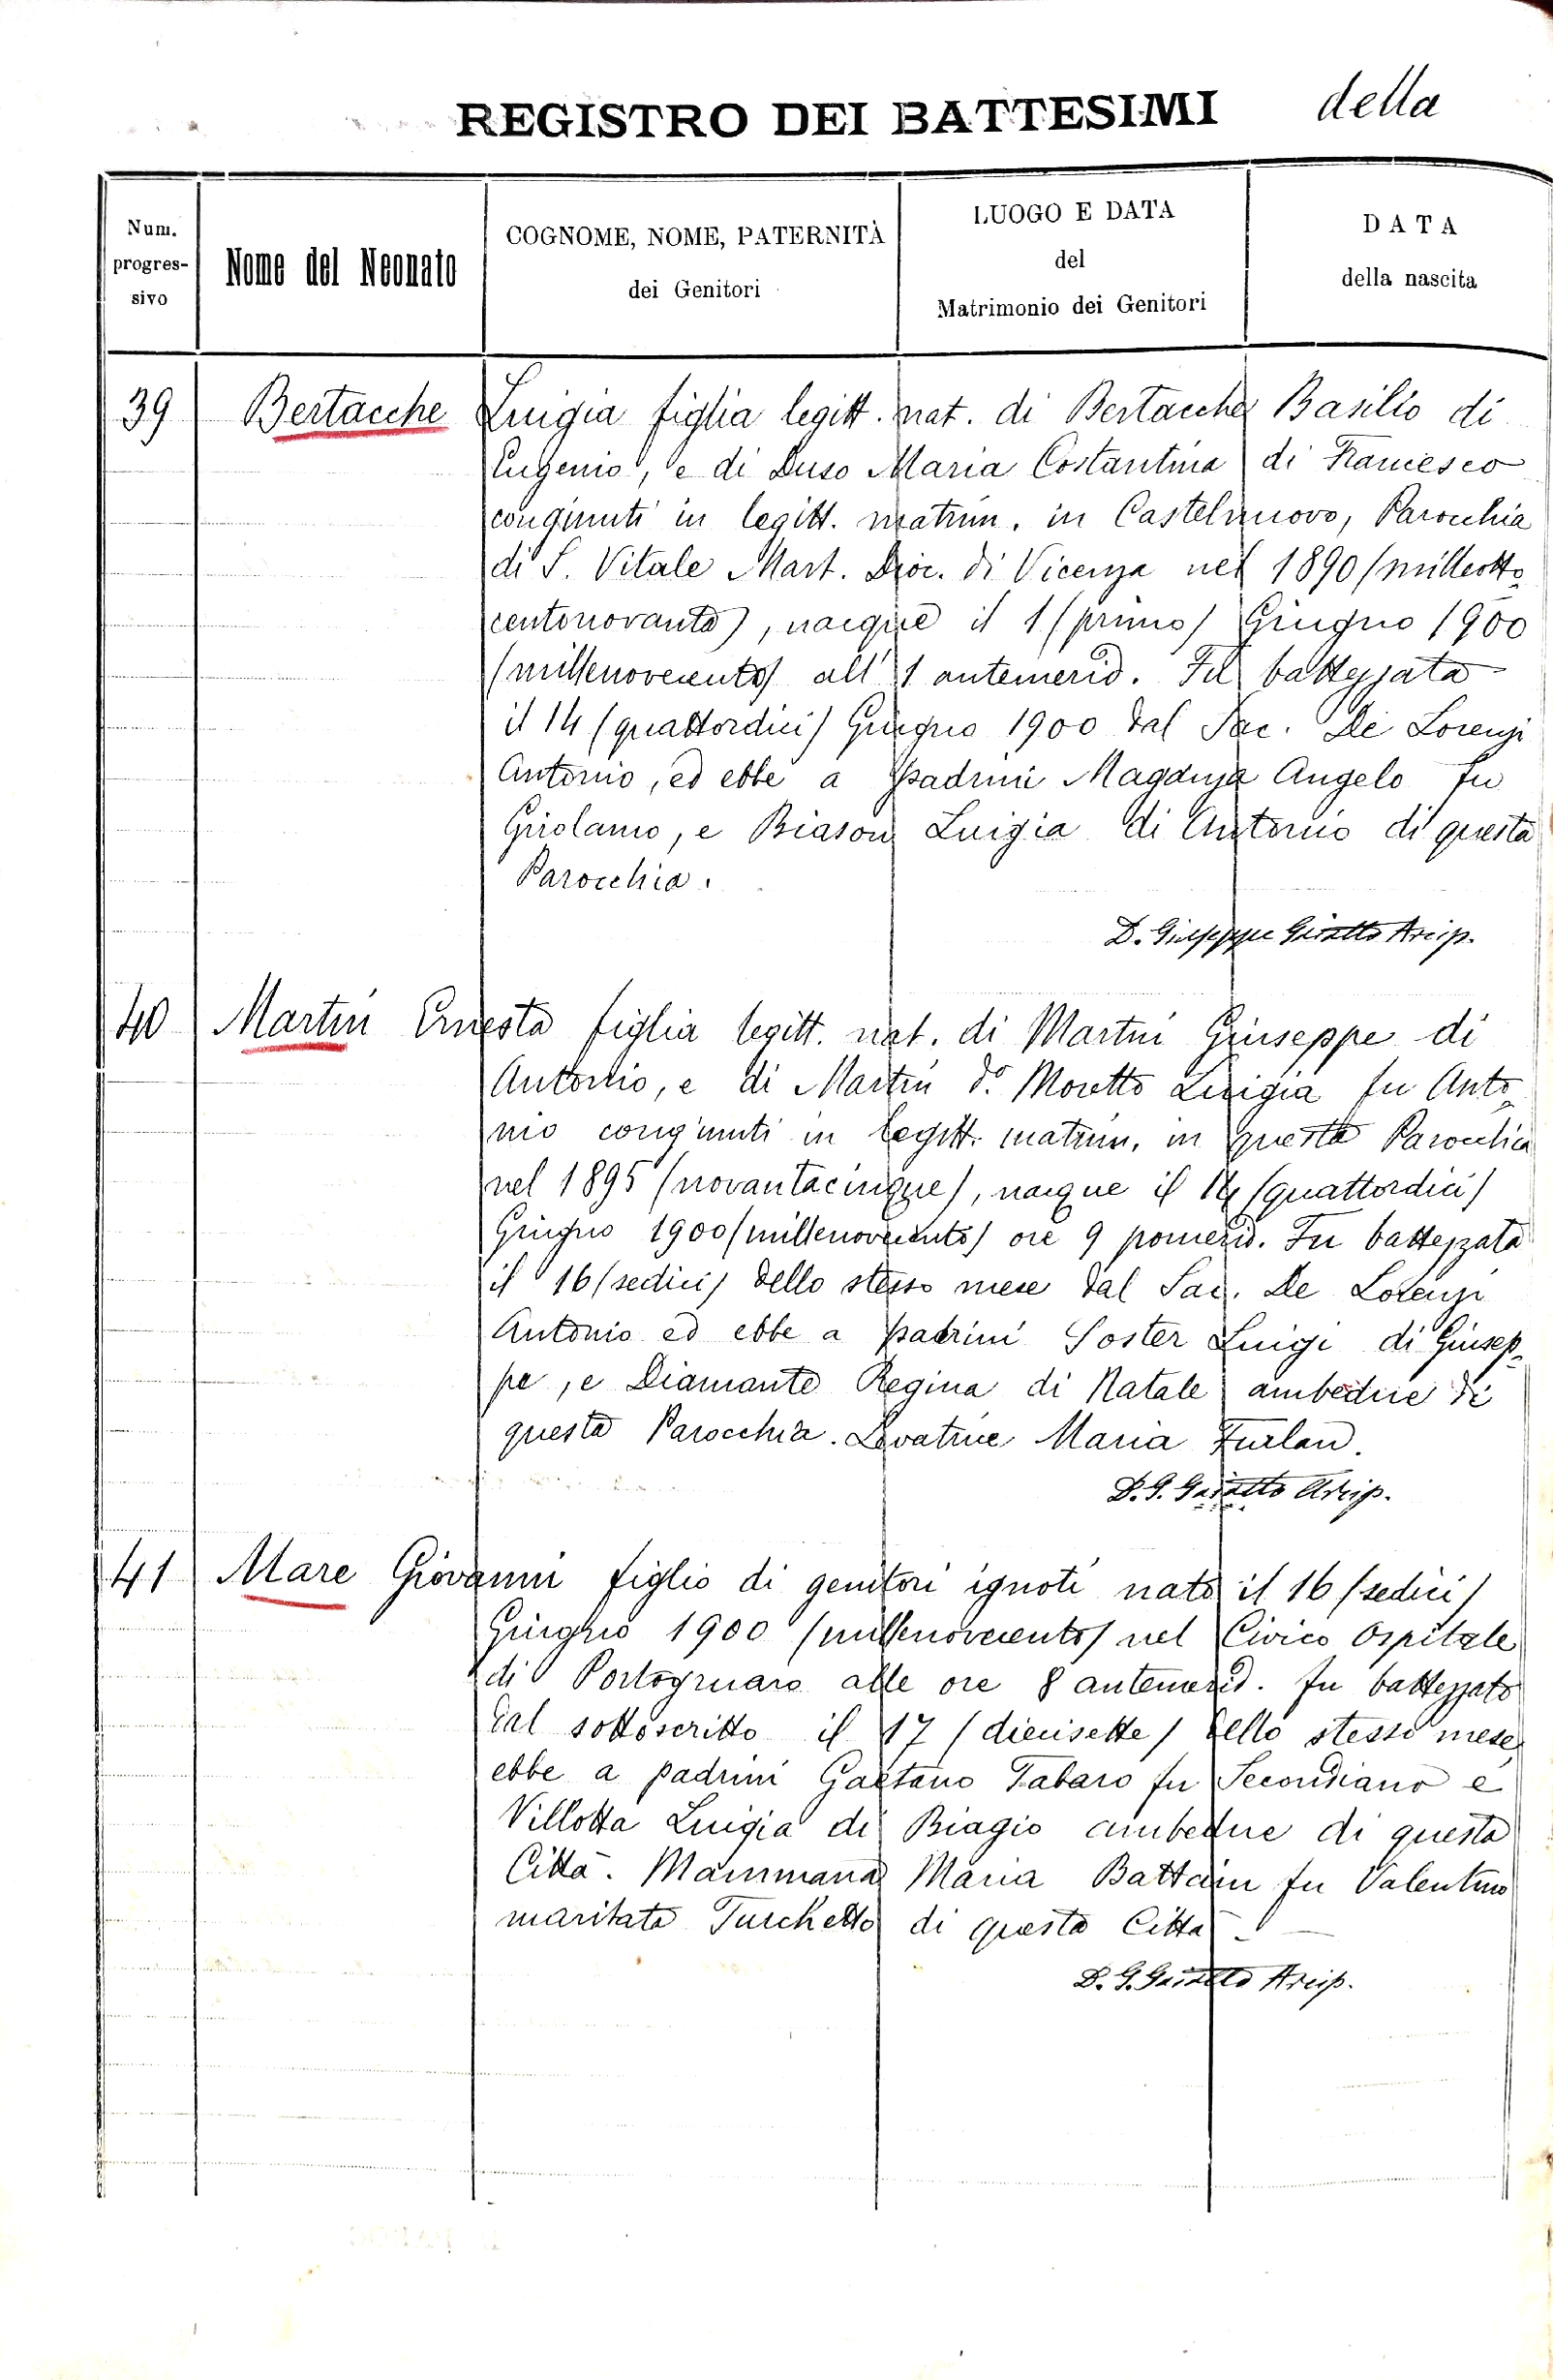 REGISTRO DEI BATTESIMI della
Num. progres- sivo
Nome del Neonato
COGNOME, NOME, PATERNITÀ
dei Genitori
LUOGO E DATA
del
Matrimonio dei Genitori
DATA
della nascita
39 Bertacche Luigia figlia legitt. nat. di Bertacche Basilio di
Eugenio, e di Duso Maria Costantina di Francesco
congiunti in legitt. matrim. in Castelnuovo, Parocchia
di S. Vitale Mart. Dioc. di Vicenza nel 1890 (milleotto
centonovanta), nacque il 1 (primo) Giugno 1900
(millenovecento) all' 1 antemerid. Fu battezzata
il 14 (quattordici) Giugno 1900 dal Sac. De Lorenzi
Antonio, ed ebbe a Padrini Angelo fu
Girolamo, e Biason Luigia di Antonio di questa
Parocchia.
D. Giuseppe Arcip.
40 Martin Ernesta figlia legitt. nat. di Martin Giuseppe di
Antonio, e di Martin d.º Moretto Luigia fu Anto
nio congiunti in legitt. matrim. in questa Parocchia
nel 1895 (novantacinque), nacque il 14 (quattordici)
Giugno 1900 (millenovecento) ore 9 pomerid. Fu battezzata
il 16 (sedici) dello stesso mese dal Sac. De Lorenzi
Antonio ed ebbe a padrini Soster Luigi di Giusep-
pe, e Diamante Regina di Natale ambedue di
questa Parocchia. Levatrice Maria Furlan.
D. G. Arcip.
41 Mare Giovanni figlio di genitori ignoti nato il 16 (sedici)
Giugno 1900 (millenovecento) nel Civico Ospitale
di Portogruaro alle ore 8 antemerid. Fu battezzato
dal sottoscritto il 17 (diecisette) dello stesso mese,
ebbe a padrini Gaetano Tabaro fu Secondiano e
Villotta Luigia di Biagio ambedue di questa
Città. Mammana Maria Battain fu Valentino
maritata Turchetto di questa Città.
D. G. Arcip.